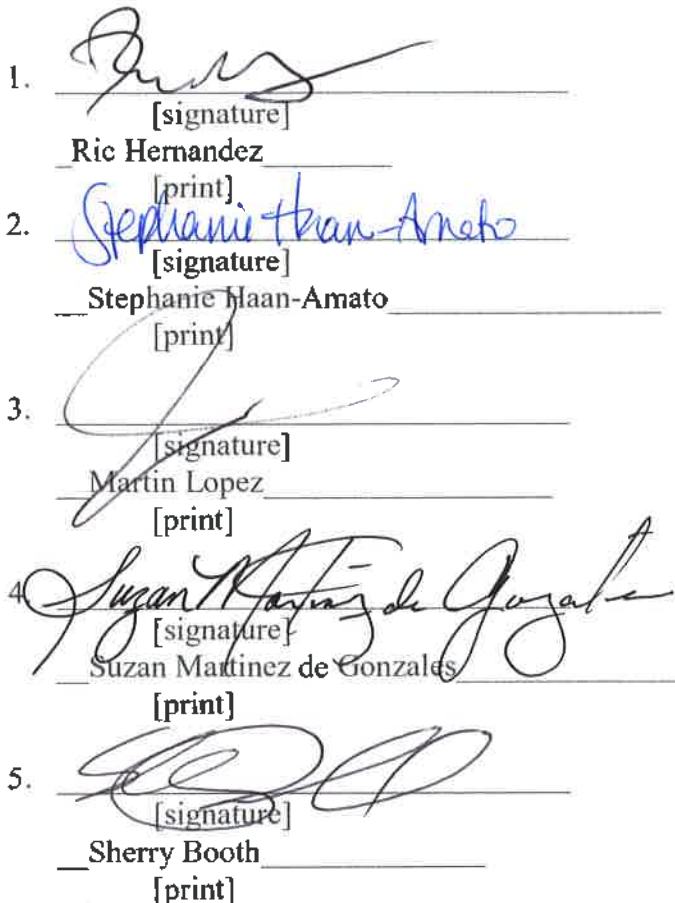 1.
[signature]
_Ric Hernandez_
[print]
2. Stephanie Haan-Amato
[signature]
__Stephanie Haan-Amato_
[print]
3.
[signature]
__Martin Lopez_
[print]
4 Suzan Martinez de Gonzales
[signature]
__Suzan Martinez de Gonzales_
[print]
5.
[signature]
__Sherry Booth_
[print]